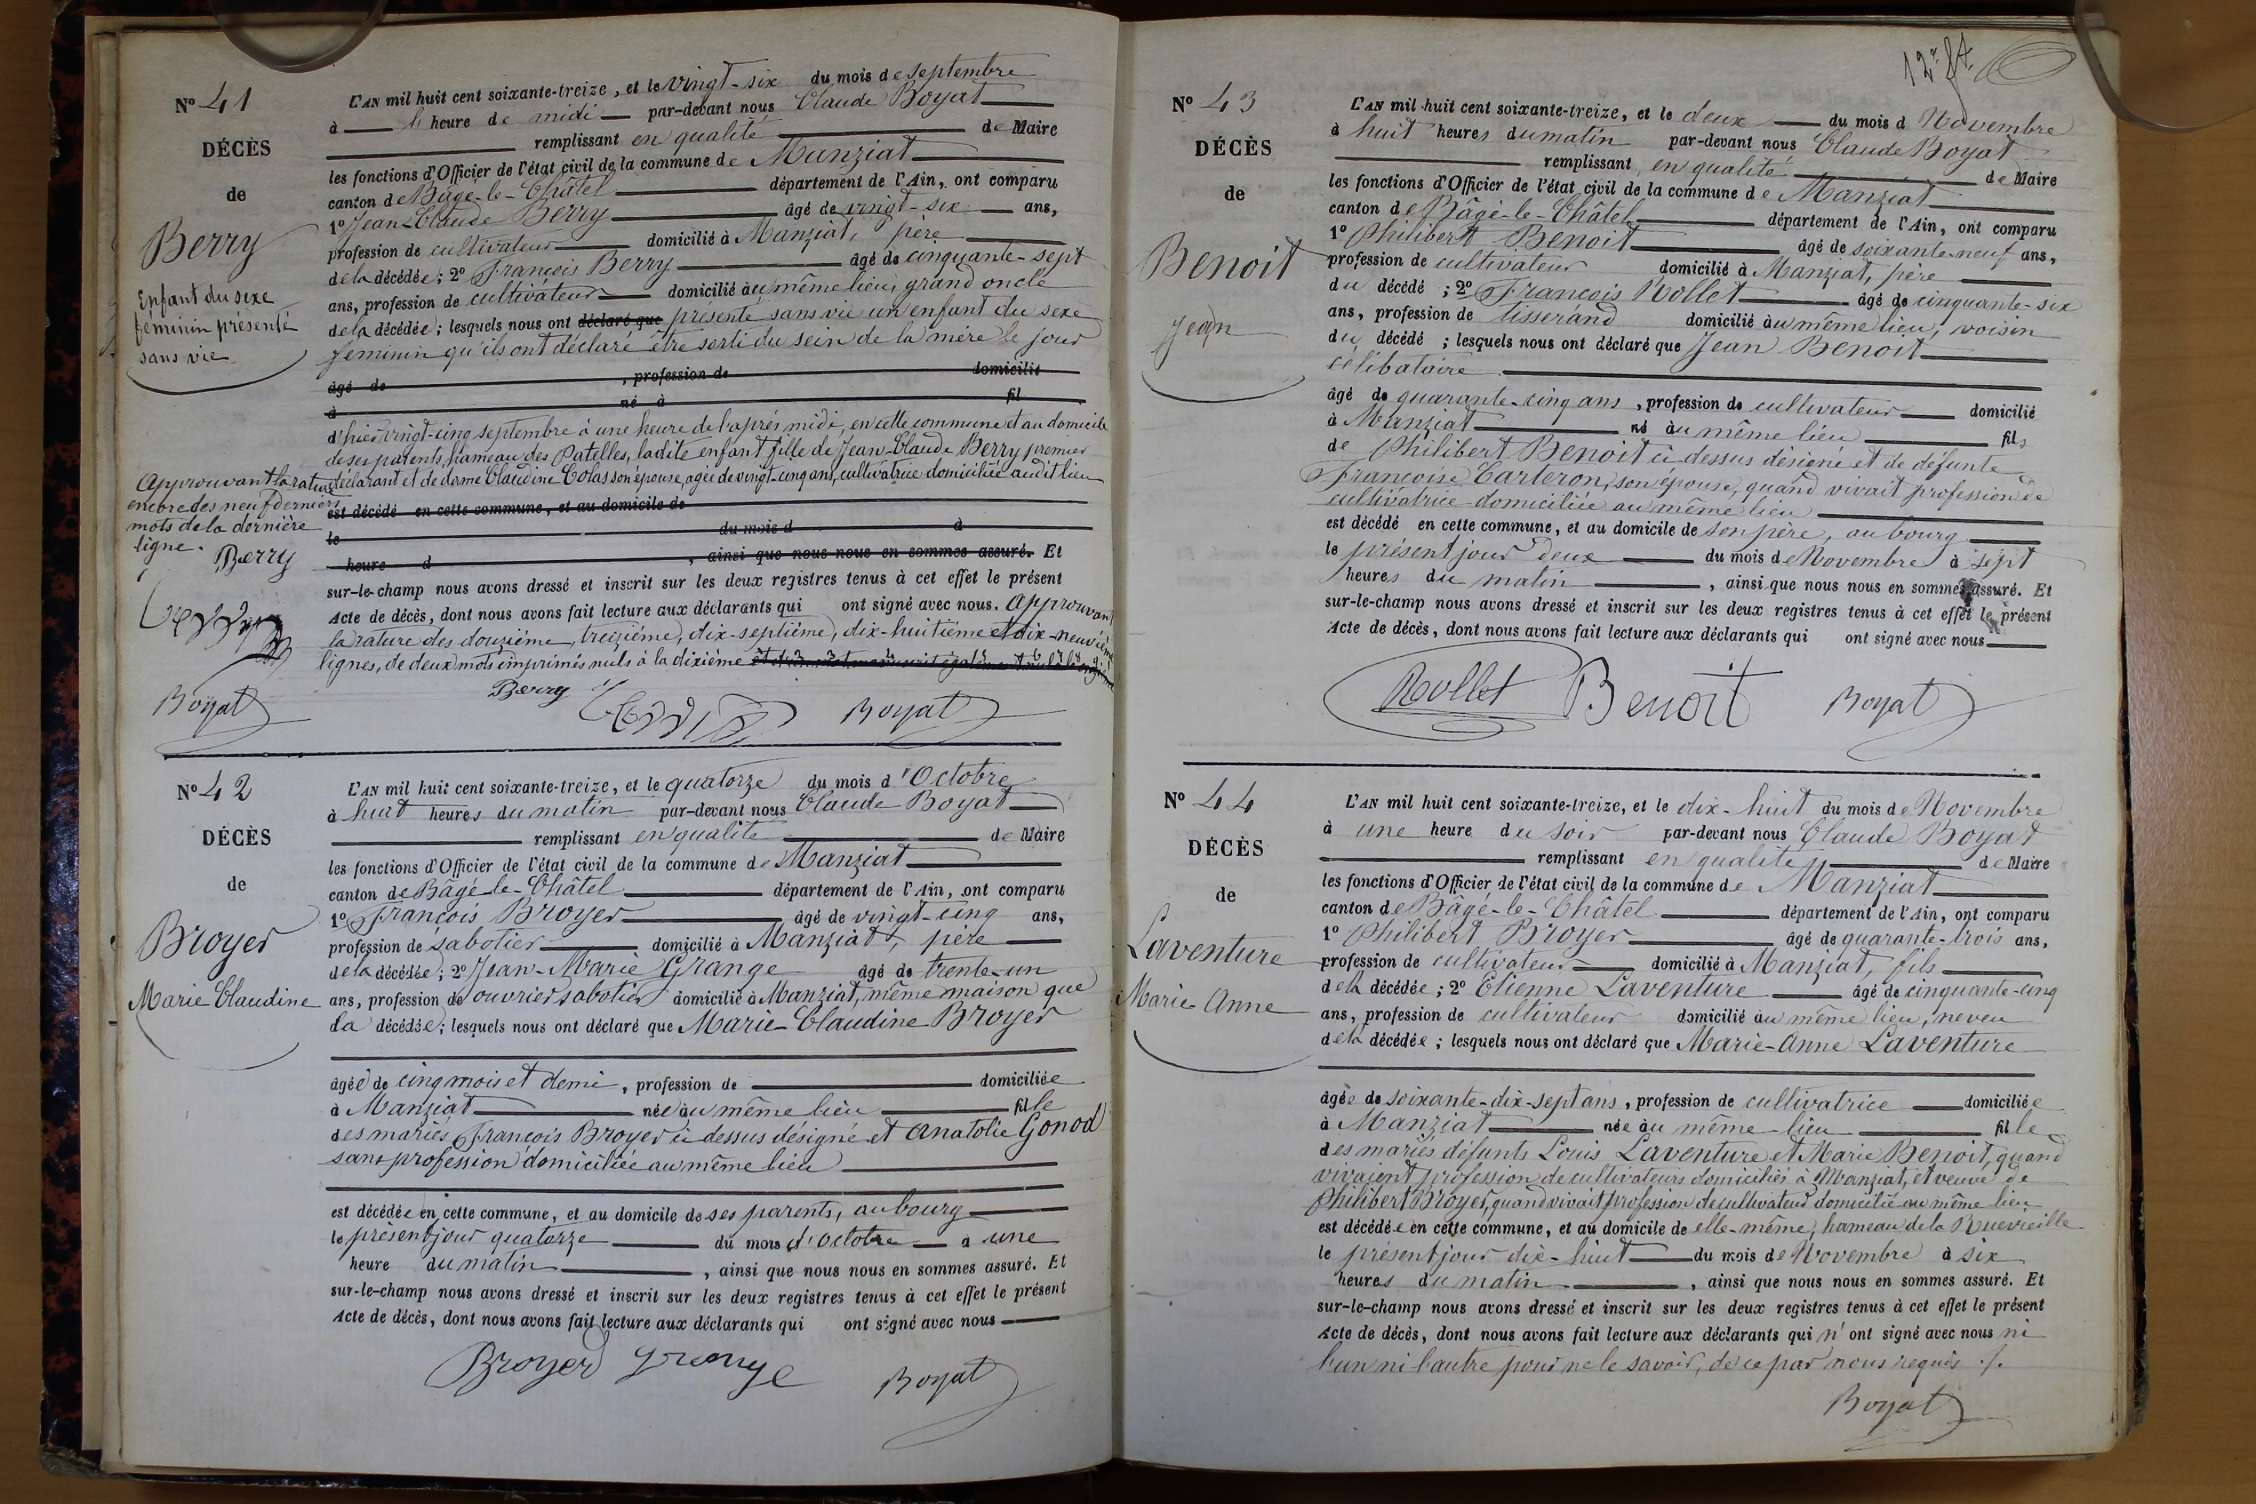 N° 41
DÉCÈS
de
Berry
Enfant du sexe
féminin présenté
sans vie
Approuvant la rature
encore des neuf derniers
mots de la dernière
ligne.
Berry
Berry
Boyat
L'AN mil huit cent soixante-treize, et le vingt-six du mois de septembre
à l' heure de midi par-devant nous Claude Boyat
remplissant en qualité de Maire
les fonctions d'Officier de l'état civil de la commune de Manziat
canton de Bâgé-le-Châtel département de l'Ain, ont comparu
1° Jean-Claude Berry âgé de vingt-six ans,
profession de cultivateur domicilié à Manziat, père
de la décédée; 2° François Berry âgé de cinquante-sept
ans, profession de cultivateur domicilié au même lieu, grand oncle
de la décédée; lesquels nous ont déclaré que présenté sans vie un enfant du sexe
féminin qu'ils ont déclaré être sorti du sein de la mère le jour
âgé de , profession de domicilié
à né à fil
d'hier vingt-cinq septembre à une heure de l'après midi, en cette commune et au domicile
de ses parents, hameau des Patelles, ladite enfant fille de Jean-Claude Berry premier
déclarant et de dame Claudine Colas son épouse, agée de vingt-cinq ans, cultivatrice domiciliée audit lieu
est décédé en cette commune, et au domicile de
le du mois d à
heure d , ainsi que nous nous en sommes assuré. Et
sur-le-champ nous avons dressé et inscrit sur les deux registres tenus à cet effet le présent
Acte de décès, dont nous avons fait lecture aux déclarants qui ont signé avec nous. Approuvant
la rature des douzième, treizième, dix-septième, dix-huitième et dix-neuvième
lignes, de deux mots imprimés nuls à la dixième
Berry Berry Boyat
N° 42
DÉCÈS
de
Broyer
Marie Claudine
L'AN mil huit cent soixante-treize, et le quatorze du mois d'Octobre
à huit heures du matin par-devant nous Claude Boyat
remplissant en qualité de Maire
les fonctions d'Officier de l'état civil de la commune de Manziat
canton de Bâgé-le-Châtel département de l'Ain, ont comparu
1° François Broyer âgé de vingt-cinq ans,
profession de sabotier domicilié à Manziat, père
de la décédée; 2° Jean-Marie Grange âgé de trente-un
ans, profession de ouvrier sabotier domicilié à Manziat, même maison que
la décédée; lesquels nous ont déclaré que Marie-Claudine Broyer
âgée de cinq mois et demi, profession de domiciliée
à Manziat née au même lieu fille
des mariés François Broyer ci dessus désigné et Anatolie Gonod
sans profession domiciliée au même lieu
est décédée en cette commune, et au domicile de ses parents, au bourg
le présent jour quatorze du mois d'Octobre à une
heure du matin , ainsi que nous nous en sommes assuré. Et
sur-le-champ nous avons dressé et inscrit sur les deux registres tenus à cet effet le présent
Acte de décès, dont nous avons fait lecture aux déclarants qui ont signé avec nous
Broyer Grange Boyat
N° 43
DÉCÈS
de
Benoit
Jean
L'AN mil huit cent soixante-treize, et le deux du mois d Novembre
à huit heures du matin par-devant nous Claude Boyat
remplissant en qualité de Maire
les fonctions d'Officier de l'état civil de la commune de Manziat
canton de Bâgé-le-Châtel département de l'Ain, ont comparu
1° Philibert Benoit âgé de soixante-neuf ans,
profession de cultivateur domicilié à Manziat, père
du décédé ; 2° François Rollet âgé de cinquante-six
ans, profession de tisserand domicilié au même lieu, voisin
du décédé ; lesquels nous ont déclaré que Jean Benoit
célibataire
âgé de quarante-cinq ans, profession de cultivateur domicilié
à Manziat né au même lieu fils
de Philibert Benoit ci dessus désigné et de défunte
Françoise Carteron, son épouse, quand vivait profession de
cultivatrice domiciliée au même lieu
est décédé en cette commune, et au domicile de son père, au bourg
le présent jour deux du mois de Novembre à sept
heures du matin , ainsi que nous nous en sommes assuré. Et
sur-le-champ nous avons dressé et inscrit sur les deux registres tenus à cet effet le présent
Acte de décès, dont nous avons fait lecture aux déclarants qui ont signé avec nous
Rollet Benoit Boyat
N° 44
DÉCÈS
de
Laventure
Marie-Anne
L'AN mil huit cent soixante-treize, et le dix-huit du mois de Novembre
à une heure du soir par-devant nous Claude Boyat
remplissant en qualité de Maire
les fonctions d'Officier de l'état civil de la commune de Manziat
canton de Bâgé-le-Châtel département de l'Ain, ont comparu
1° Philibert Broyer âgé de quarante-trois ans,
profession de cultivateur domicilié à Manziat, fils
de la décédée ; 2° Etienne Laventure âgé de cinquante-cinq
ans, profession de cultivateur domicilié au même lieu, neveu
de la décédée ; lesquels nous ont déclaré que Marie-Anne Laventure
âgée de soixante-dix-sept ans, profession de cultivatrice domiciliée
à Manziat née au même lieu fille
des mariés défunts Louis Laventure et Marie Benoit, quand
vivaient profession de cultivateurs domiciliés à Manziat, et veuve de
Philibert Broyer, quand vivait profession de cultivateur domicilié au même lieu
est décédée en cette commune, et au domicile de elle-même, hameau de la
le présent jour dix-huit du mois de Novembre à six
heures du matin , ainsi que nous nous en sommes assuré. Et
sur-le-champ nous avons dressé et inscrit sur les deux registres tenus à cet effet le présent
Acte de décès, dont nous avons fait lecture aux déclarants qui n'ont signé avec nous ni
l'un ni l'autre pour ne le savoir, de ce par nous requis ./.
Boyat